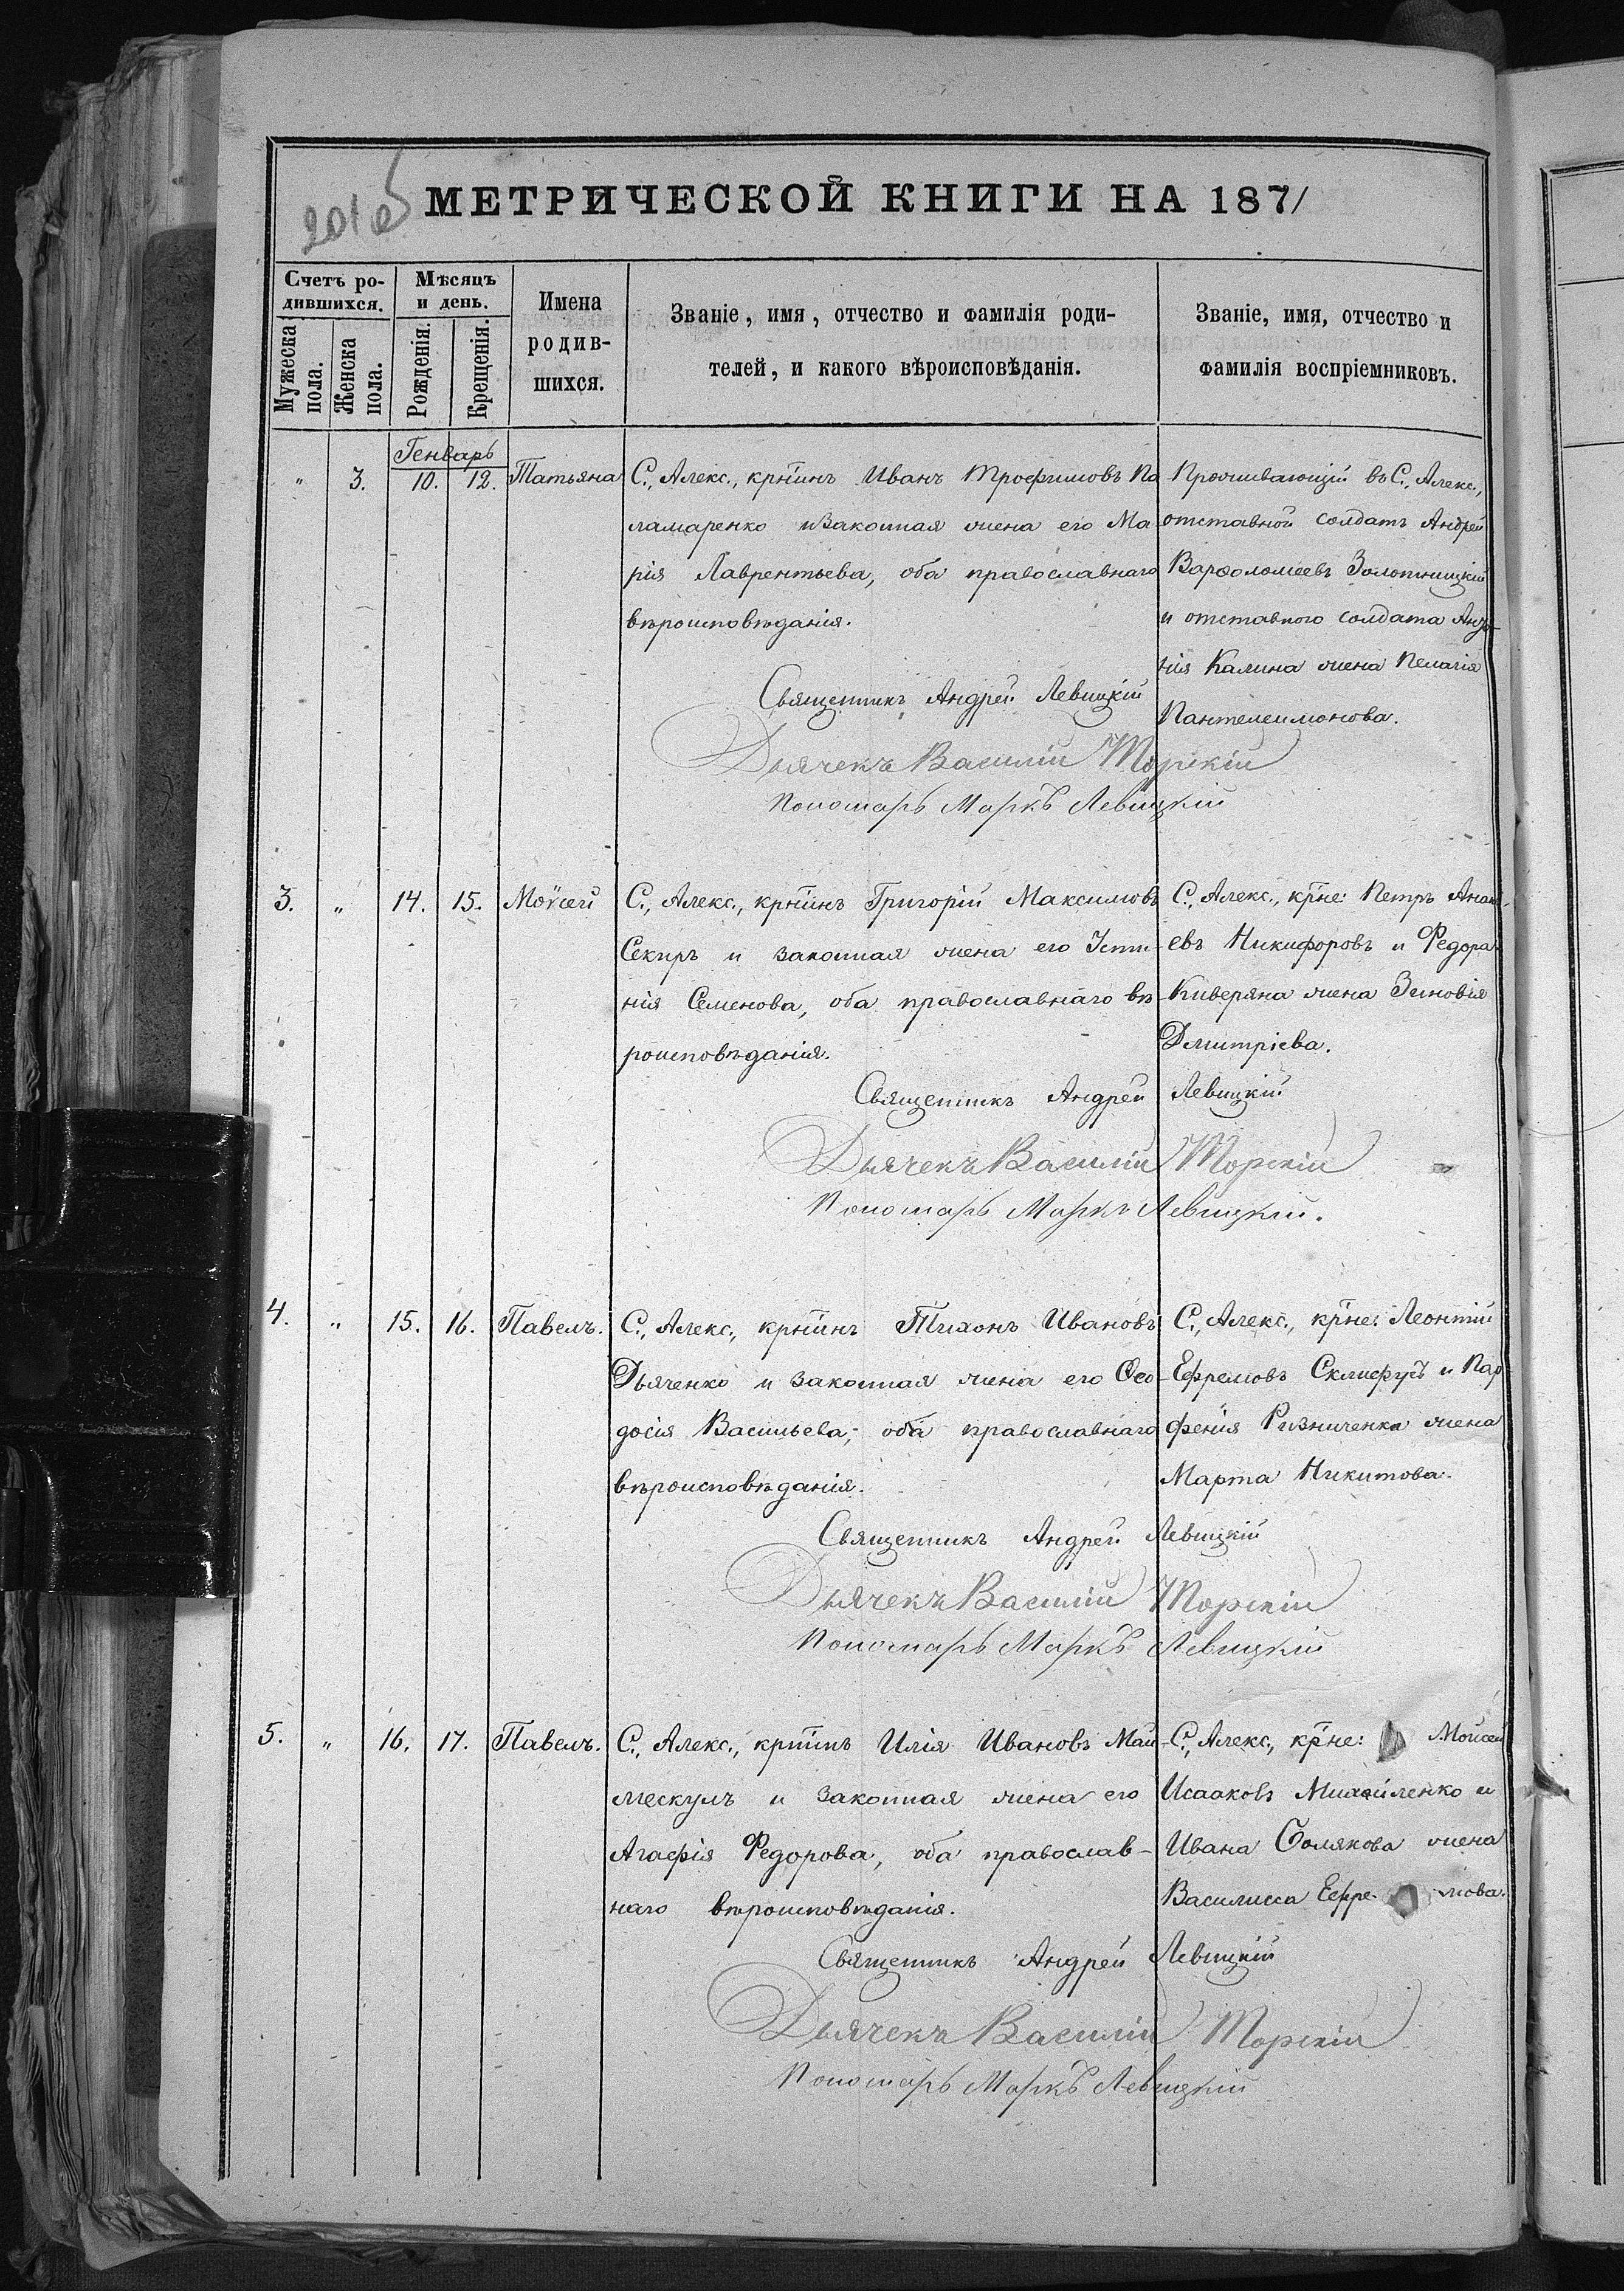 МЕТРИЧЕСКОЙ КНИГИ НА 1871
Счетъ ро-
дившихся.
Мужеска
пола.
Женска
пола.
Мѣсяцъ
и день.
Рожденія.
Крещенія.
Имена
родив-
шихся.
Званіе, имя, отчество и фамилія роди-
телей, и какого вѣроисповѣданія.
Званіе, имя, отчество и
фамилія воспріемниковъ.
Генварь
" 3. 10. 12. Татьяна
С., Алекс., крнинъ Иванъ Трофимовъ По
ламаренко и законная жена его Ма
рія Лаврентьева, оба православнаго
вѣроисповѣданія.
Проживающій въ С., Алекс.,
отставной солдатъ Андрей
Варѳоломеевъ Золотницкій
и отставного солдата
нія Калина жена Пелагія
Пантелеимонова.
Священникъ Андрей Левицкій
Дьячекъ Василій Торскій
Пономарь Маркъ Левицкій
3. " 14. 15. Моѵсей
С., Алекс., крнинъ Григорій Максимовъ
Секиръ и законная жена его Усти-
нія Семенова, оба православнаго вѣ-
роисповѣданія.
С., Алекс., крне: Петръ Анані-
евъ Никифоровъ и Федора
Киверяна жена Зиновія
Дмитріева.
Священникъ Андрей Левицкій
Дьячекъ Василій Торскій
Пономарь Маркъ Левицкій.
4. " 15. 16. Павелъ.
С., Алекс., крнинъ Тихонъ Ивановъ
Дьяченко и законная жена его Ѳео-
досія Васильева, оба православнаго
вѣроисповѣданія.
С., Алекс., крне: Леонтій
Ефремовъ Склифусъ и Пар
фенія Ризниченка жена
Марта Никитова.
Священникъ Андрей Левицкій
Дьячекъ Василій Торскій
Пономарь Маркъ Левицкій
5. " 16. 17. Павелъ.
С., Алекс., крнинъ Илія Ивановъ Май-
мескулъ и законная жена его
Агафія Федорова, оба православ-
наго вѣроисповѣданія.
С., Алекс., крне: Мойсей
Исааковъ Михайленко и
Ивана Солякова жена
Василисса Ефре- мова.
Священникъ Андрей Левицкій
Дьячекъ Василій Торскій
Пономарь Маркъ Левицкій